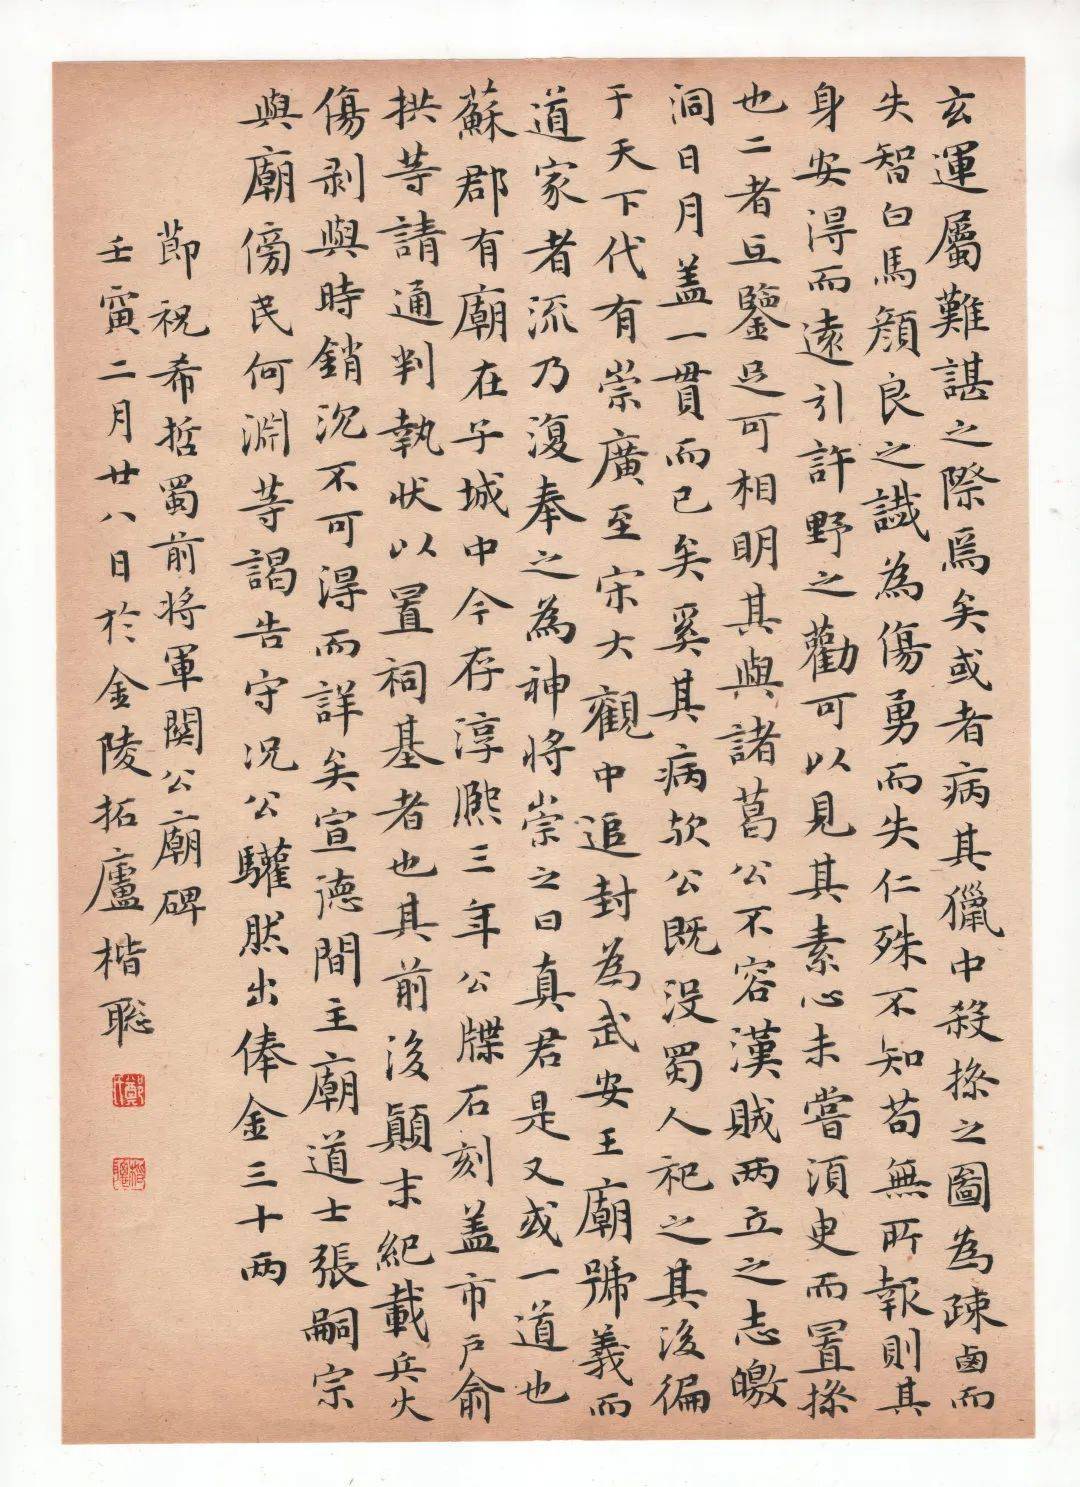 玄運屬難諶之際焉矣或者病其獵中殺操之圖為疎鹵而
失智白馬顏良之諴為傷勇而失仁殊不知苟無所報則其
身安得而遠引許野之勸可以見其素心未嘗須臾而置操
也二者互鑒足可相明其與諸葛公不容漢賊两立之志皦
洞日月盖一貫而已矣奚其病欤公既没蜀人祀之其後徧
于天下代有崇廣至宋大觀中追封為武安王廟號義而
道家者流乃復奉之為神將崇之曰真君是又或一道也
蘇郡有廟在子城中今存淳熙三年公牒石刻盖市户俞
拱等請通判執狀以置祠基者也其前後顛末紀載兵火
傷剥與時銷沉不可得而詳矣宣德間主廟道士張嗣宗
與廟傍民何淵等謁告守况公驩然出俸金三十两
節祝希哲蜀前將軍関公廟碑
壬寅二月廿八日於金陵拓廬楷聡
鄭氏
楷聰